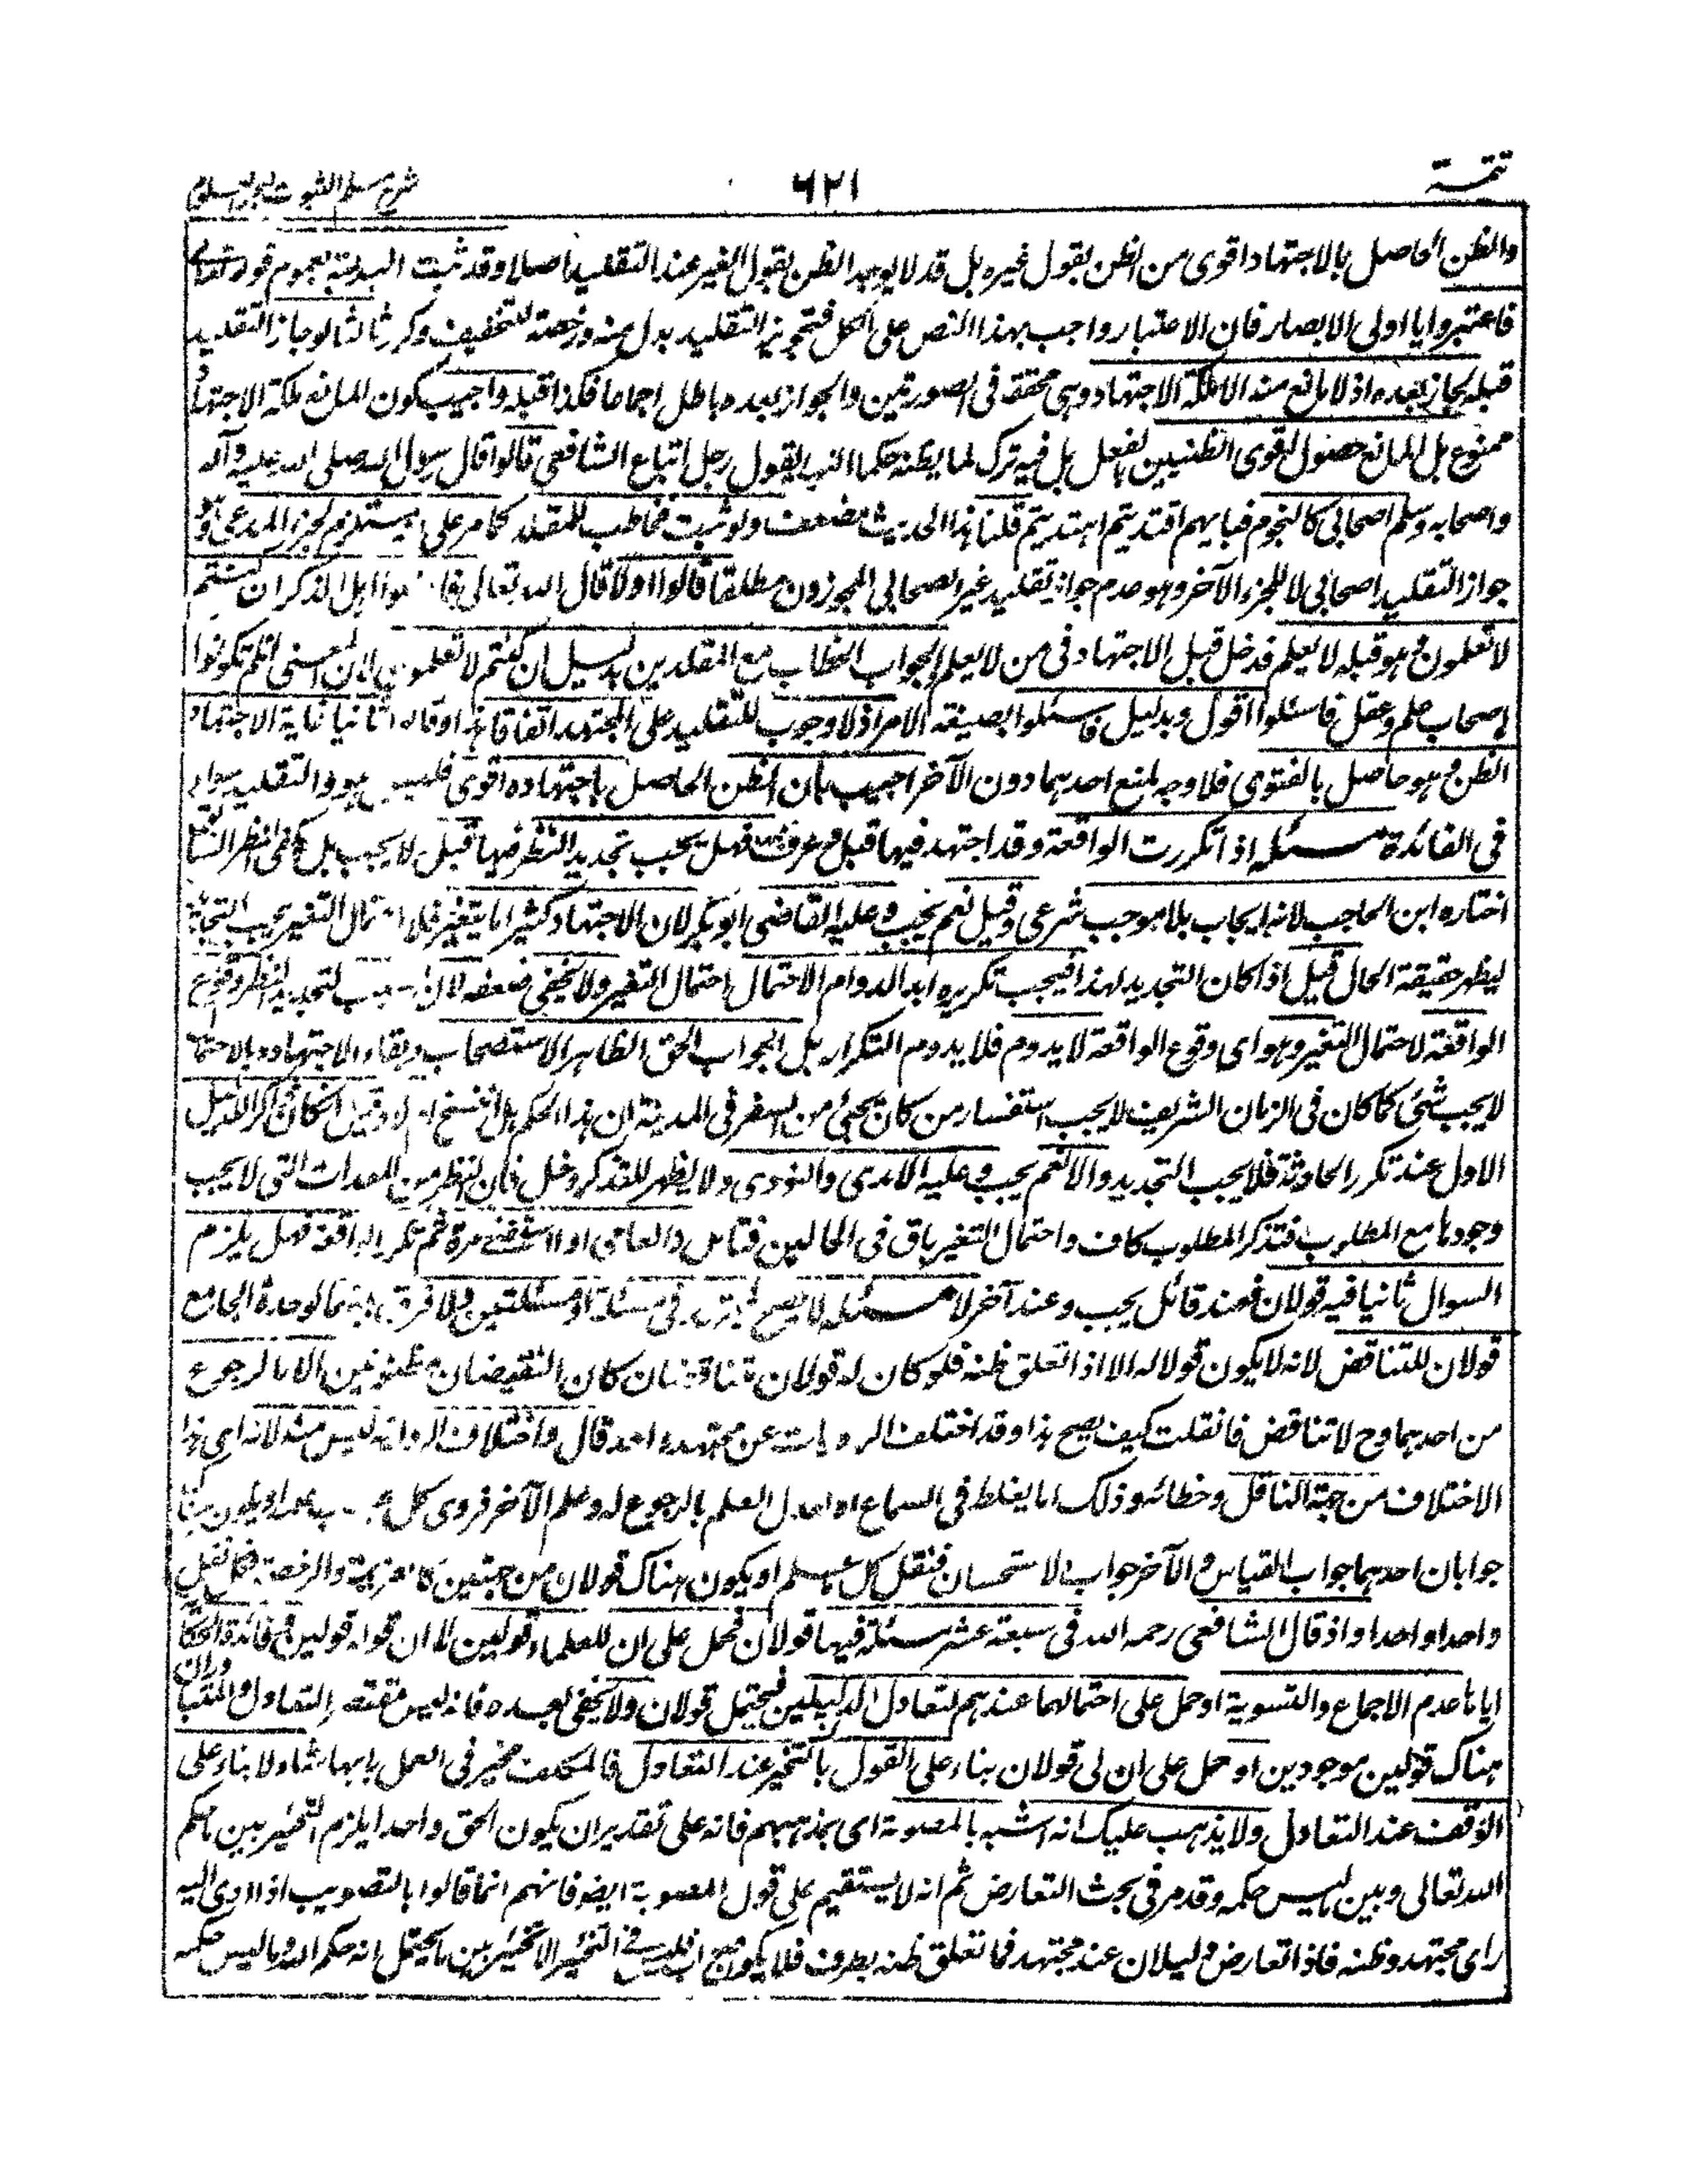 تتمة ٦٢١ شرح مسلم الثبوت لبحر العلوم
والظن الحاصل بالاجتهاد اقوى من الظن بقول غيره بل قد لا يوجد الظن بقول الغير عند التقليد اصلا وقد ثبت البدلية بعموم قوله تعالى
فاعتبروا يا اولى الابصار فان الاعتبار واجب بهذا النص على الكل فتجويز التقليد بدل منه ورخصة للتخفيف وكر ثالثا لو جاز التقليد
قبله لجاز بعده اذ لا مانع منه الا ملكة الاجتهاد وهى محققة فى الصورتين والجواز بعده باطل اجماعا فكذا قبله واجيب كون المانع ملكة الاجتهاد
ممنوع بل المانع حصول اقوى الظنيين بالفعل بل فيه ترك لما يظنه حكما الٰهيا لقول رجل اتباع الشافعى قالوا قال رسول الله صلى الله عليه وآله
واصحابه وسلم اصحابى كالنجوم فبايهم اقتديتم اهتديتم قلنا هذا الحديث ضعف ولو ثبت فخاطب للمقلد كما مر على يستلزم لجزء المدعى وهو
جواز التقليد اصحابى لا للجزء الآخر وهو عدم جواز تقليد غير الصحابى المجوزون مطلقا قالوا اولا قال الله تعالى فاسئلوا اهل الذكر ان كنتم
لا تعلمون وهو قبله لا يعلم فدخل قبل الاجتهاد فى من لا يعلم الجواب الخطاب مع المقلدين بدليل ان كنتم لا تعلمون لان المعنى ان لم تكونوا
اصحاب علم وعقل فاسئلوا اقول وبدليل فاسئلوا بصيغة الامر اذ لا وجوب للتقليد على المجتهد اتفاقا وقالوا ثانيا غاية الاجتهاد
الظن وهو حاصل بالفتوى فلا وجه لمنع احدهما دون الآخر اجيب بان الظن الحاصل باجتهاده اقوى فليس هو والتقليد سواء
فى الفائدة مسئلة اذا تكررت الواقعة وقد اجتهد فيها قبل وعرفت فهل يجب تجديد النظر فيها قيل لا يجب بل يكفى النظر السابق
اختاره ابن الحاجب لانه ايجاب بلا موجب شرعى وقيل نعم يجب وعليه القاضى ابو بكر لان الاجتهاد كثيرا ما يتغير فلاحتمال التغير يجب التجديد
ليظهر حقيقة الحال قيل اذا كان التجديد لهذا فيجب تكريره ابدا لدوام الاحتمال احتمال التغير ولا يخفى ضعفه لان سبب التجديد النظر وقوع
الواقعة لاحتمال التغير وهو اى وقوع الواقعة لا يدوم فلا يدوم التكرار بل الجواب الحق الظاهر الاستصحاب وبقاء الاجتهاد وبالاحتمال
لا يجب شئ كما كان فى الزمان الشريف لا يجب استفسار من كان يجئ من السفر فى المدينة ان هذا الحكم هل نسخ ام لا وقيل ان كان ذاكر الدليل
الاول عند تكرر الحادثة فلا يجب التجديد والا نعم يجب وعليه الآمدى والنووى ولا يظهر للتذكر دخل فان النظر من المعدات التى لا يجب
وجودها مع المطلوب فتذكر المطلوب كاف واحتمال التغير باق فى الحالين فتامل والعامى اذا استفتى مرة ثم تكرر الواقعة فهل يلزم
السوال ثانيا فيه قولان فعند قائل يجب وعند آخر لا مسئلة لا يصح لمجتهد فى مسئلة او مسئلتين ولا فرق بينهما لوحدة الجامع
قولان للتناقض لانه لا يكون قولا له الا اذا تعلق ظنه فلو كان له قولان متناقضان كان النقيضان مظنونين الا بالرجوع
من احدهما وح لا تناقض فان قلت كيف يصح هذا وقد اختلف الروايات عن مجتهد واحد قال واختلاف الرواية ليس منه لانه اى هذا
الاختلاف من جهة الناقل وخطائه وذلك اما بغلط فى السماع او لعدم العلم بالرجوع له وعلم الآخر فروى كل بما علم او يكون هناك
جوابان احدهما جواب القياس والآخر جواب الاستحسان فنقل كل ما علم او يكون هناك قولان من جهتين كالعزيمة والرخصة فكل نقل
واحدا واحدا واذ قال الشافعى رحمه الله فى سبعة عشر مسئلة فيها قولان فحمل على ان للعلماء قولين الا ان قوله قولين فائدة الحكاية
ايانا عدم الاجماع والتسوية او حمل على احتمالهما عندهم لتعادل الدليلين فيحتمل قولان ولا يخفى بعده فانه ليس مقتضى التعادل والمتبادر ان
هناك قولين موجودين او حمل على ان لى قولان بناء على القول بالتخير عند التعادل فالمكلف مخير فى العمل بايهما شاء لا بناء على
الوقف عند التعادل ولا يذهب عليك انه اشبه بالمصوبة اى بمذهبهم فانه على تقدير ان يكون الحق واحدا يلزم التخير بين ما حكم
الله تعالى وبين ما ليس حكمه وقد مر فى بحث التعارض ثم انه لا يستقيم على قول المصوبة ايضا فانهم انما قالوا بالتصويب اذا ادى اليه
راى مجتهد وظنه فاذا تعارض دليلان عند مجتهد فما تعلق ظنه بطرف فلا يكون صوابا فليس فى التخير الا تخير بين ما يحتمل انه حكم الله وما ليس حكمه